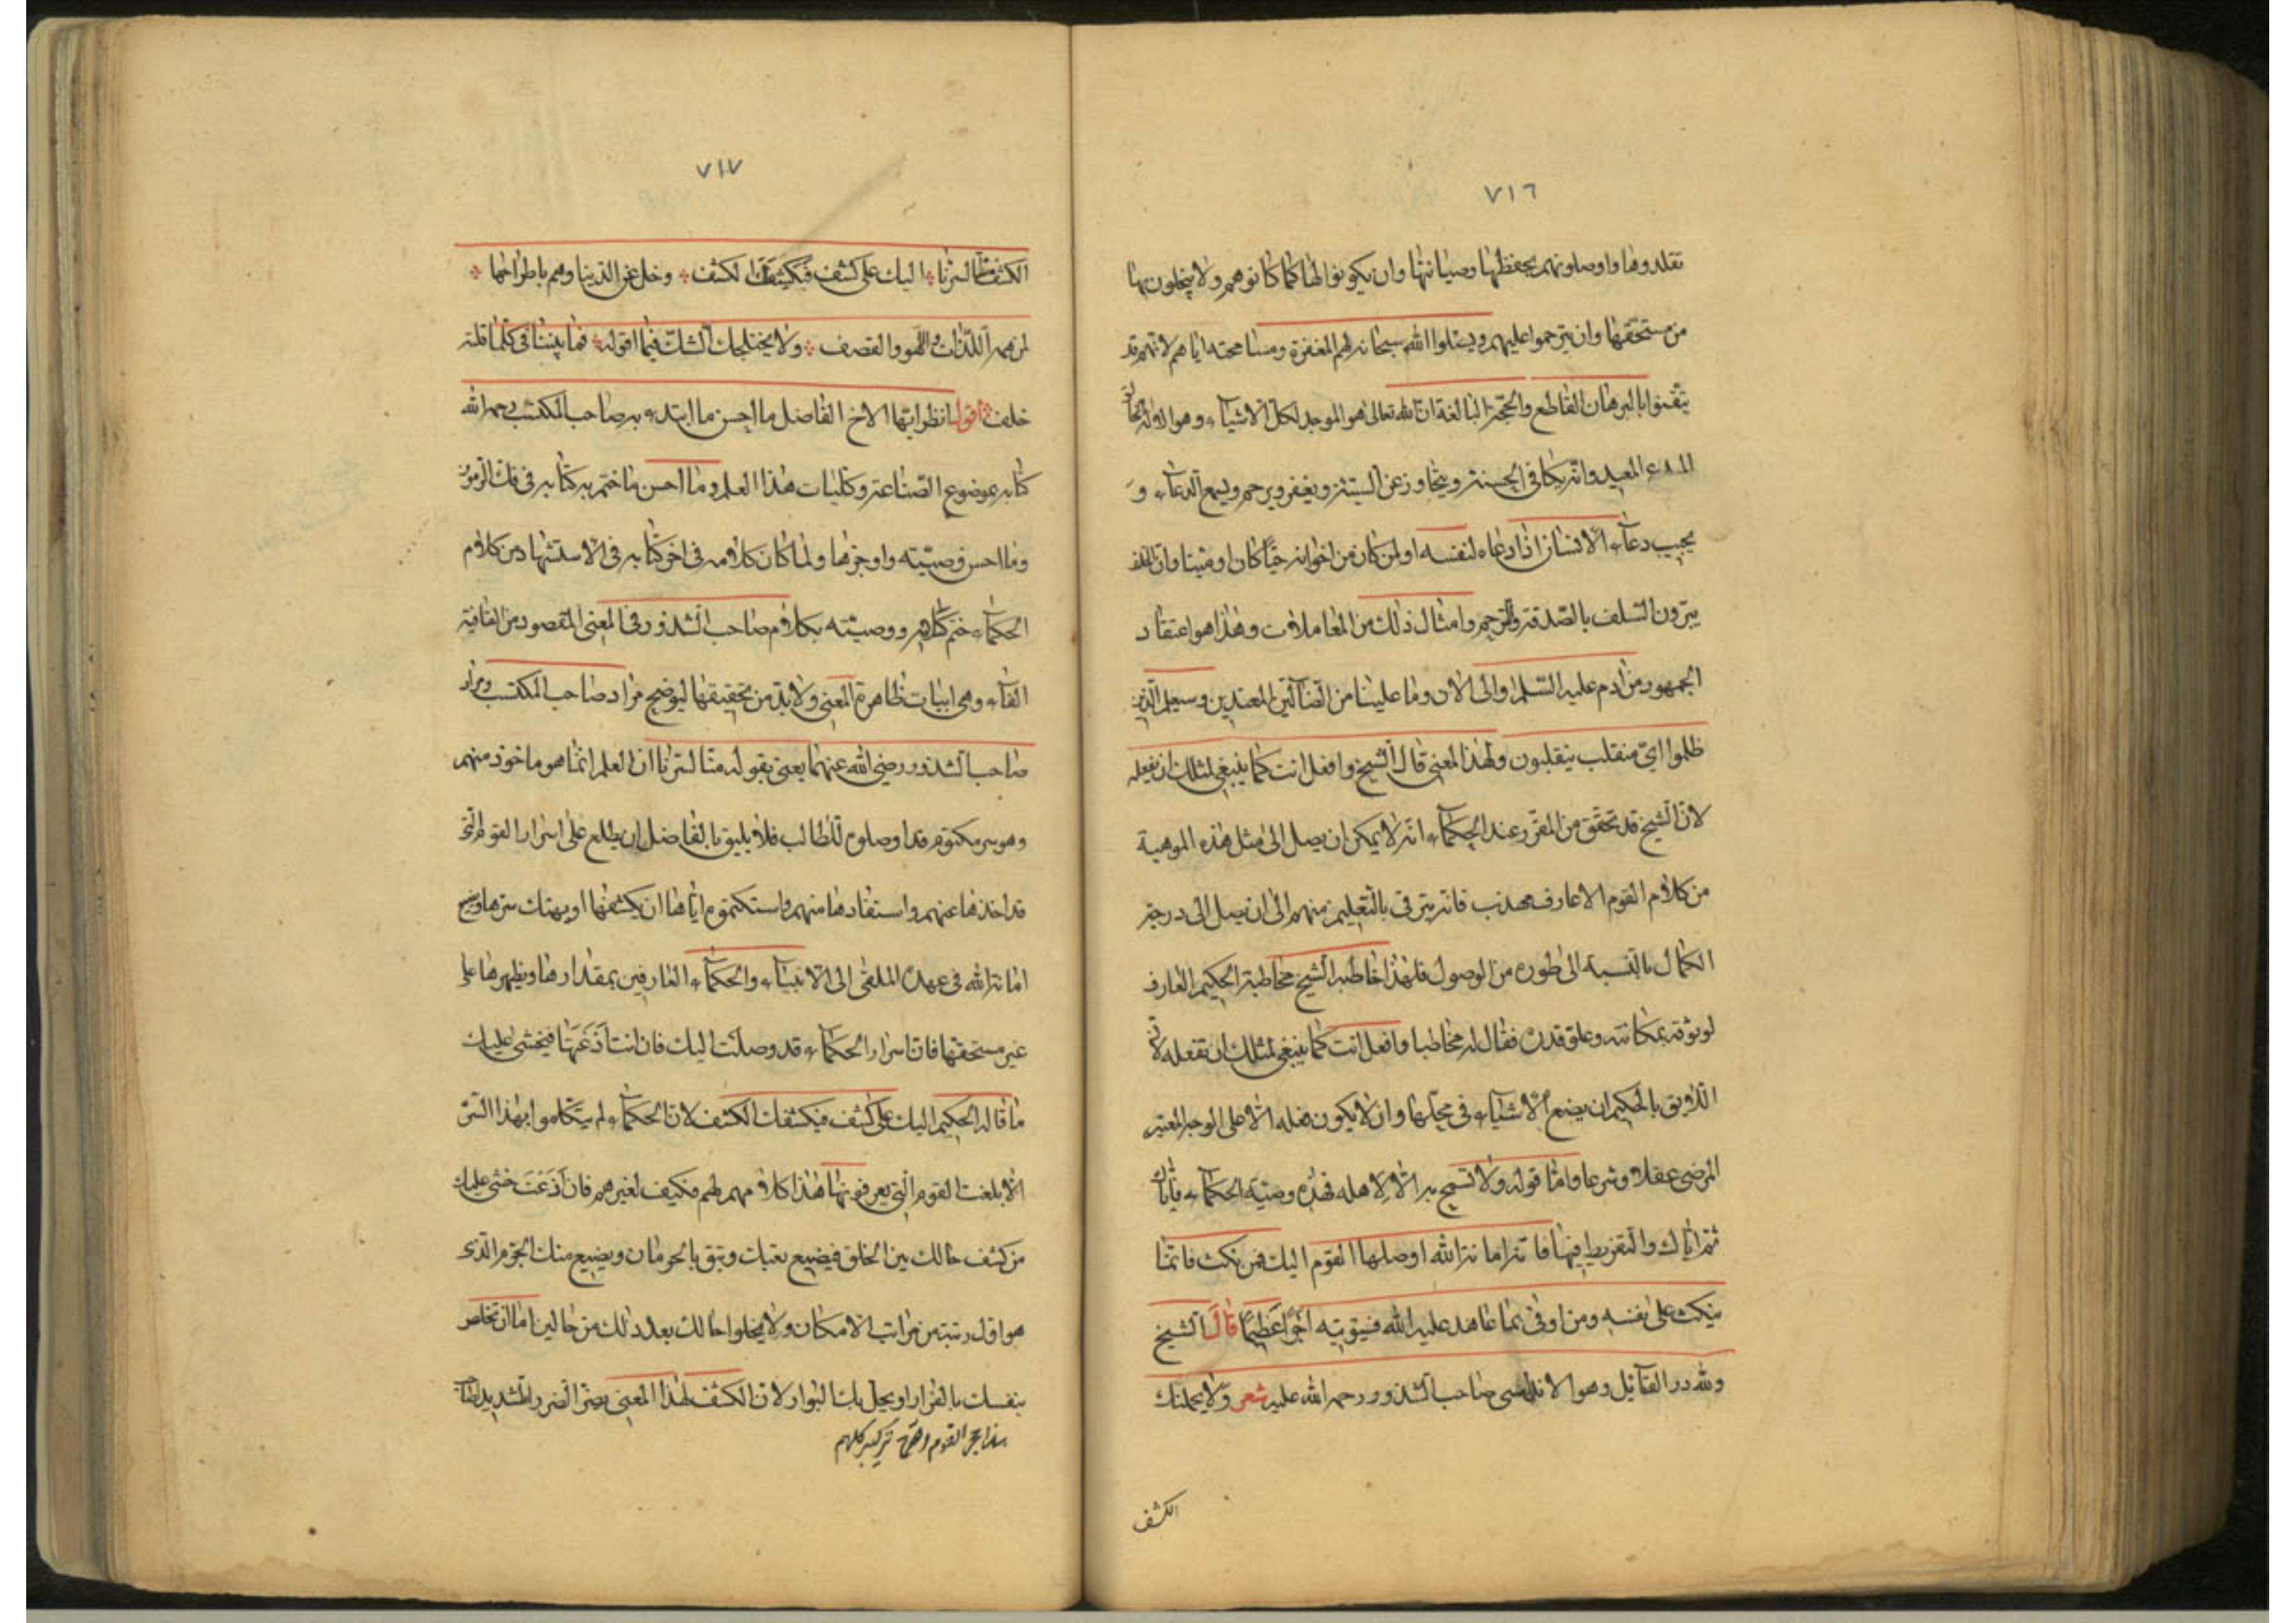 ٧١٦
تقلدوها واوصلونهم بحفظها وصيانتها وان يكونوا لها كما كانوا هم ولا يبخلون بها
من مستحقها وان يترحموا عليهم ويسئلوا الله سبحانه لهم المغفرة ومسامحته اياهم لانهم قد
يتقنوا بالبرهان القاطع والحجة البالغة ان الله تعالى هو الموجد لكل الاشياء وهو الاله الحق
المبدء المعيد وانه يكافى الحسنة ويتجاوز عن السيئة ويغفر ويرحم ويسمع الدعاء و
يجيب دعاء الانسان اذا دعاه لنفسه او لمن كان من اخوانه حيّا كان او ميتا وان الخلف
يبرّون السلف بالصدقة والترحم وامثال ذلك من المعاملات وهذا هو اعتقاد
الجمهور من ادم عليه السلم والى الان وما علينا من الضالين المعتدين وسيعلم الذين
ظلموا اىّ منقلب ينقلبون ولهذا المعنى قال الشيخ وافعل انت كما ينبغى لمثلك ان يفعله
لان الشيخ قد تحقق من المقرر عند الحكماء انه لا يمكن ان يصل الى مثل هذه الموهبة
من كلام القوم الا عارف مهذب فانه يترقى بالتعليم منهم الى ان يصل الى درجة
الكمال بالنسبة الى طوره من الوصول فلهذا خاطبه الشيخ مخاطبة الحكيم العارف
لوثوقه بمكانته وعلو قدره فقال له مخاطبا وافعل انت كما ينبغى لمثلك ان تفعله لان
اللايق بالحكيم ان يضع الاشياء فى محلها وان لا يكون فعله الا على الوجه المعتبر
المرضى عقلا وشرعا واما قوله ولا تسمح به الا لاهله فهذه وصية الحكماء فاياك
ثم اياك والتفريط فيها فانه امانة الله اوصلها القوم اليك فمن نكث فانما
ينكث على نفسه ومن اوفى بما عاهد عليه الله فسيؤتيه اجرا عظيما قال الشيخ
ولله در القائل وهو الاندلسى صاحب الشذور رحمه الله عليه شعر ولا يحملنك
الكشف
٧١٧
الكشف لسرنا اليك على كشف فيكشفك الكشف وخل عن الدنيا وهم باطراحها
لمن همه اللذات واللهو والقصف ولا يختلجك الشك فيما اقوله فما بيننا فى كلما قلته
خلف اقول انظر ايها الاخ الفاضل ما احسن ما ابتدء به صاحب المكتسب رحمه الله
كتابه بموضوع الصناعة وكليات هذا العلم وما احسن ما ختم به كتابه فى فك الرموز
وما احسن وصيته واوجزها ولما كان كلامه فى اخر كتابه فى الاستشهاد من كلام
الحكماء ختم كلامهم ووصيته بكلام صاحب الشذور فى المعنى المقصود من القافية
الفاء وهى ابيات ظاهرة المعنى ولا بد من تحقيقها ليوضح مراد صاحب المكتسب ومراد
صاحب الشذور رضى الله عنهما يعنى بقوله لسرنا ان العلم انما هو ماخوذ منهم
وهو سر مكتوم قد اوصلوه للطالب فلا يليق بالفاضل ان يطلع على اسرار القوم التى
قد اخذها عنهم واستفادها منهم واستكتموه اياها ان يكشفها او يهتك سترها ويبيح
امانة الله فى عهده الملقى الى الانبياء والحكماء العارفين بمقدارها ويظهرها على
غير مستحقها فان اسرار الحكماء قد وصلت اليك فان انت اذعتها فيخشى عليك
ما قاله الحكيم اليك على كشف فيكشفك الكشف لان الحكماء لم يتكلموا بهذا السر
الا بلغة القوم التى يعرفونها هذا كلامهم لهم فكيف لغيرهم فان اذعت خشى عليك
من كشف حالك بين الخلق فيضيع تعبك وتبق بالحرمان ويضيع منك الجزم الذى
هو اقل رتبة من مراتب الامكان ولا يخلوا حالك بعد ذلك من حالين اما ان تخاطر
بنفسك بالفرار او يحل بك البوار لان الكشف لهذا المعنى يضر الضرر الشديد
القوم تركيبهم